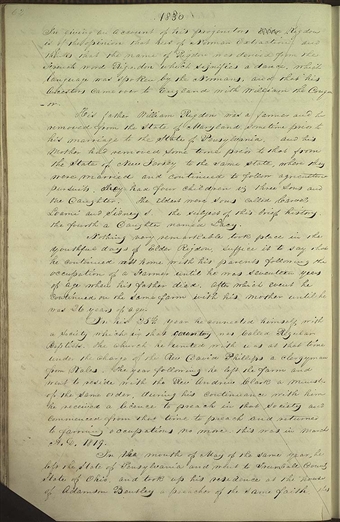 1830
In giving an account of his progenitors Elder Rigdon
is of the opinion that he is of Norman extraction, and
thinks that the name of Rigdon was derived from the
French word Rigodon which signifies a dance, which
language was spoken by the Normans, and that his
ancestors came over to England with William the Conquer
or.
His father William Rigdon was a farmer and he
removed from the State of Maryland sometime prior to
his marriage to the State of Pennsylvania and his
Mother had removed some time prior to that from
the State of New Jersey to the same state, where they
were married and continued to follow agricultural
pursuits. They had four children viz three sons and
one Daughter. The eldest were sons called Carvel,
Loami and Sidney S. the subject of this brief history
the fourth a Daughter named Lucy.
Nothing very remarkable took place in the
youthful days of Elder Rigdon, suffice it to say that
he continued at home with his parents following the
occupation of a Farmer until he was seventeen years
of age when his father died; after which event he
continued on the same farm with his mother until he
was 26 years of age.
In his 25th year he connected himself with
a Society which in that country was called Regular
Baptists. The church he united with was at that time
under the charge of the Rev David Phillips a clergyman
from Wales. The year following he left the farm and
went to reside with the Rev Andrew Clark a minister
of the same order, during his continuance with him
he received a license to preach in that Society and
commenced from that time to preach and returned
to farming occupations no more. this was in March
A.D. 1819.
In the month of May of the same year, he
left the State of Pennsylvania and went to Trumbull County
State of Ohio, and took up his residence at the house
of Adamson Bentley a preacher of the same faith